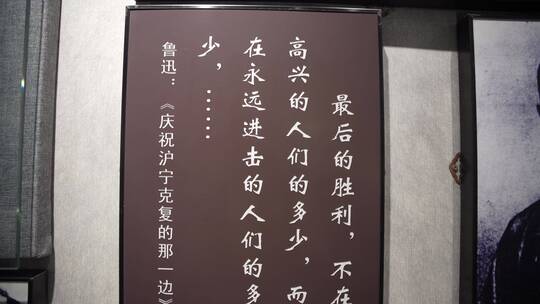 最后的胜利，不在
高兴的人们的多少，而
在永远进击的人们的多
少，……
鲁迅：《庆祝沪宁克复的那一边》